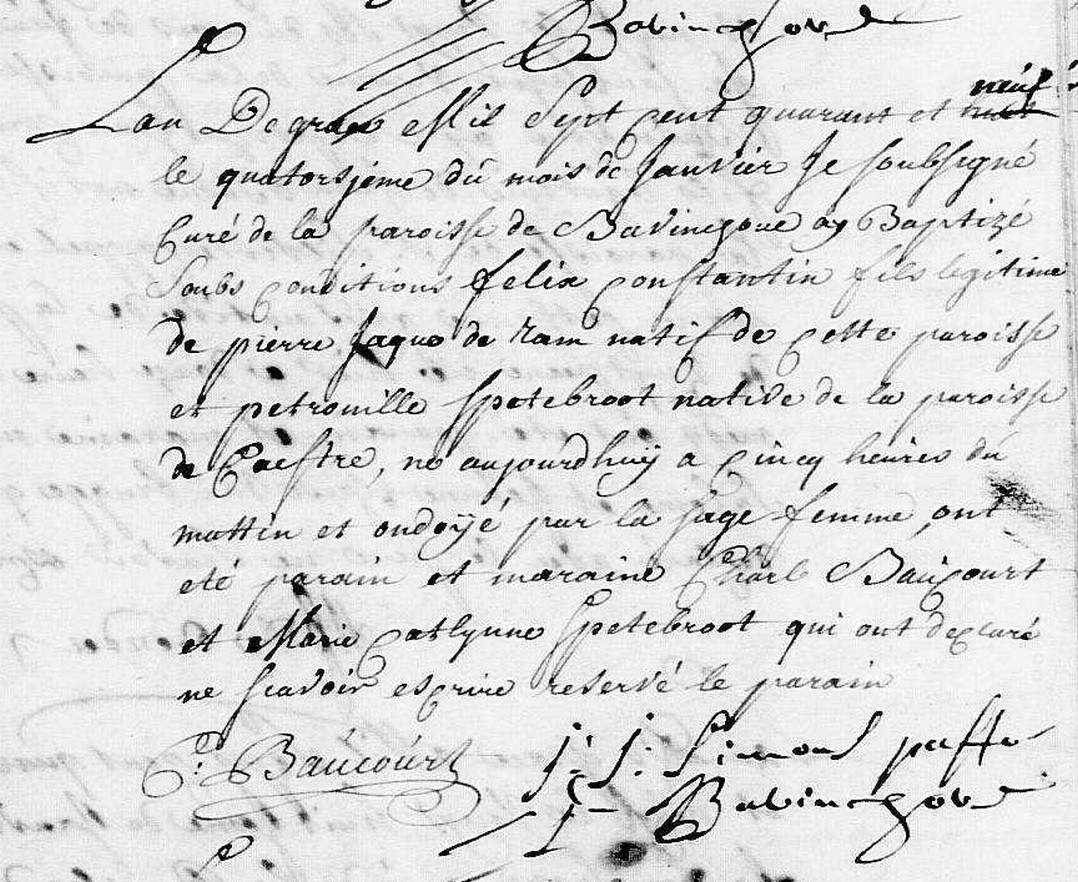 Bavinchove
neuf
Lan De grace Mil Sept cent quarant et huit
le quatorsjéme dú mois de Janvier Je soubsigné
Curé de la paroisse de Bavincgoue ay Baptizé
Soubs conditions felix constantin fils legitime
de pierre Jaque de ram natif de cette paroisse
et petronille spetebroot native de la paroisse
de Caestre, né aujourdhuÿ a cincq heures dú
mattin et ondoÿé par la sage femme, ont
eté parain et maraine Charle Baúcourt
et Marie catlynne spetebroot qui ont declaré
ne scavoir escrire reservé le parain
C: Baúcoúrt J: J: Simon
Bavinchove